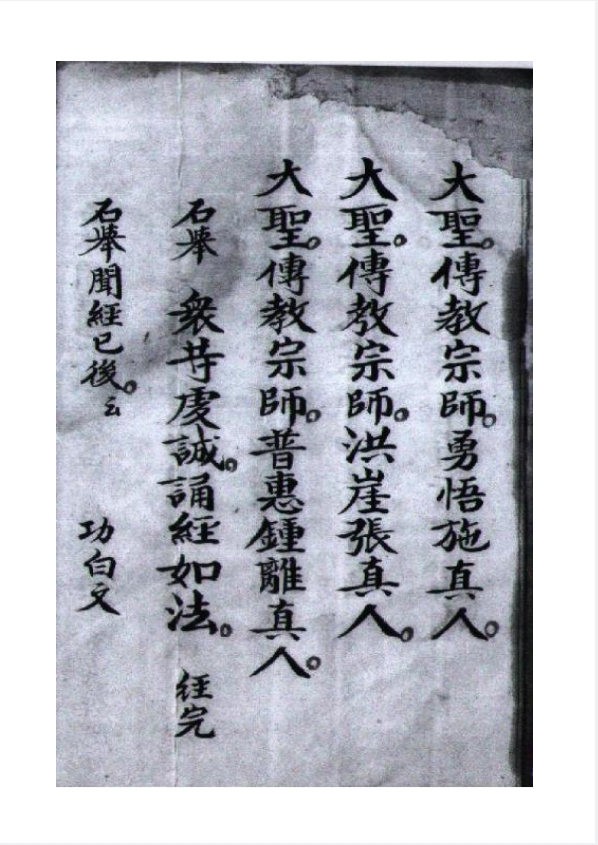 大聖。傳教宗師。勇悟施真人。
大聖。傳教宗師。洪崖張真人。
大聖。傳教宗師。普惠鍾離真人。
右舉 衆等虔誠。誦經如法。 經完
右舉聞經已後。云 功白文